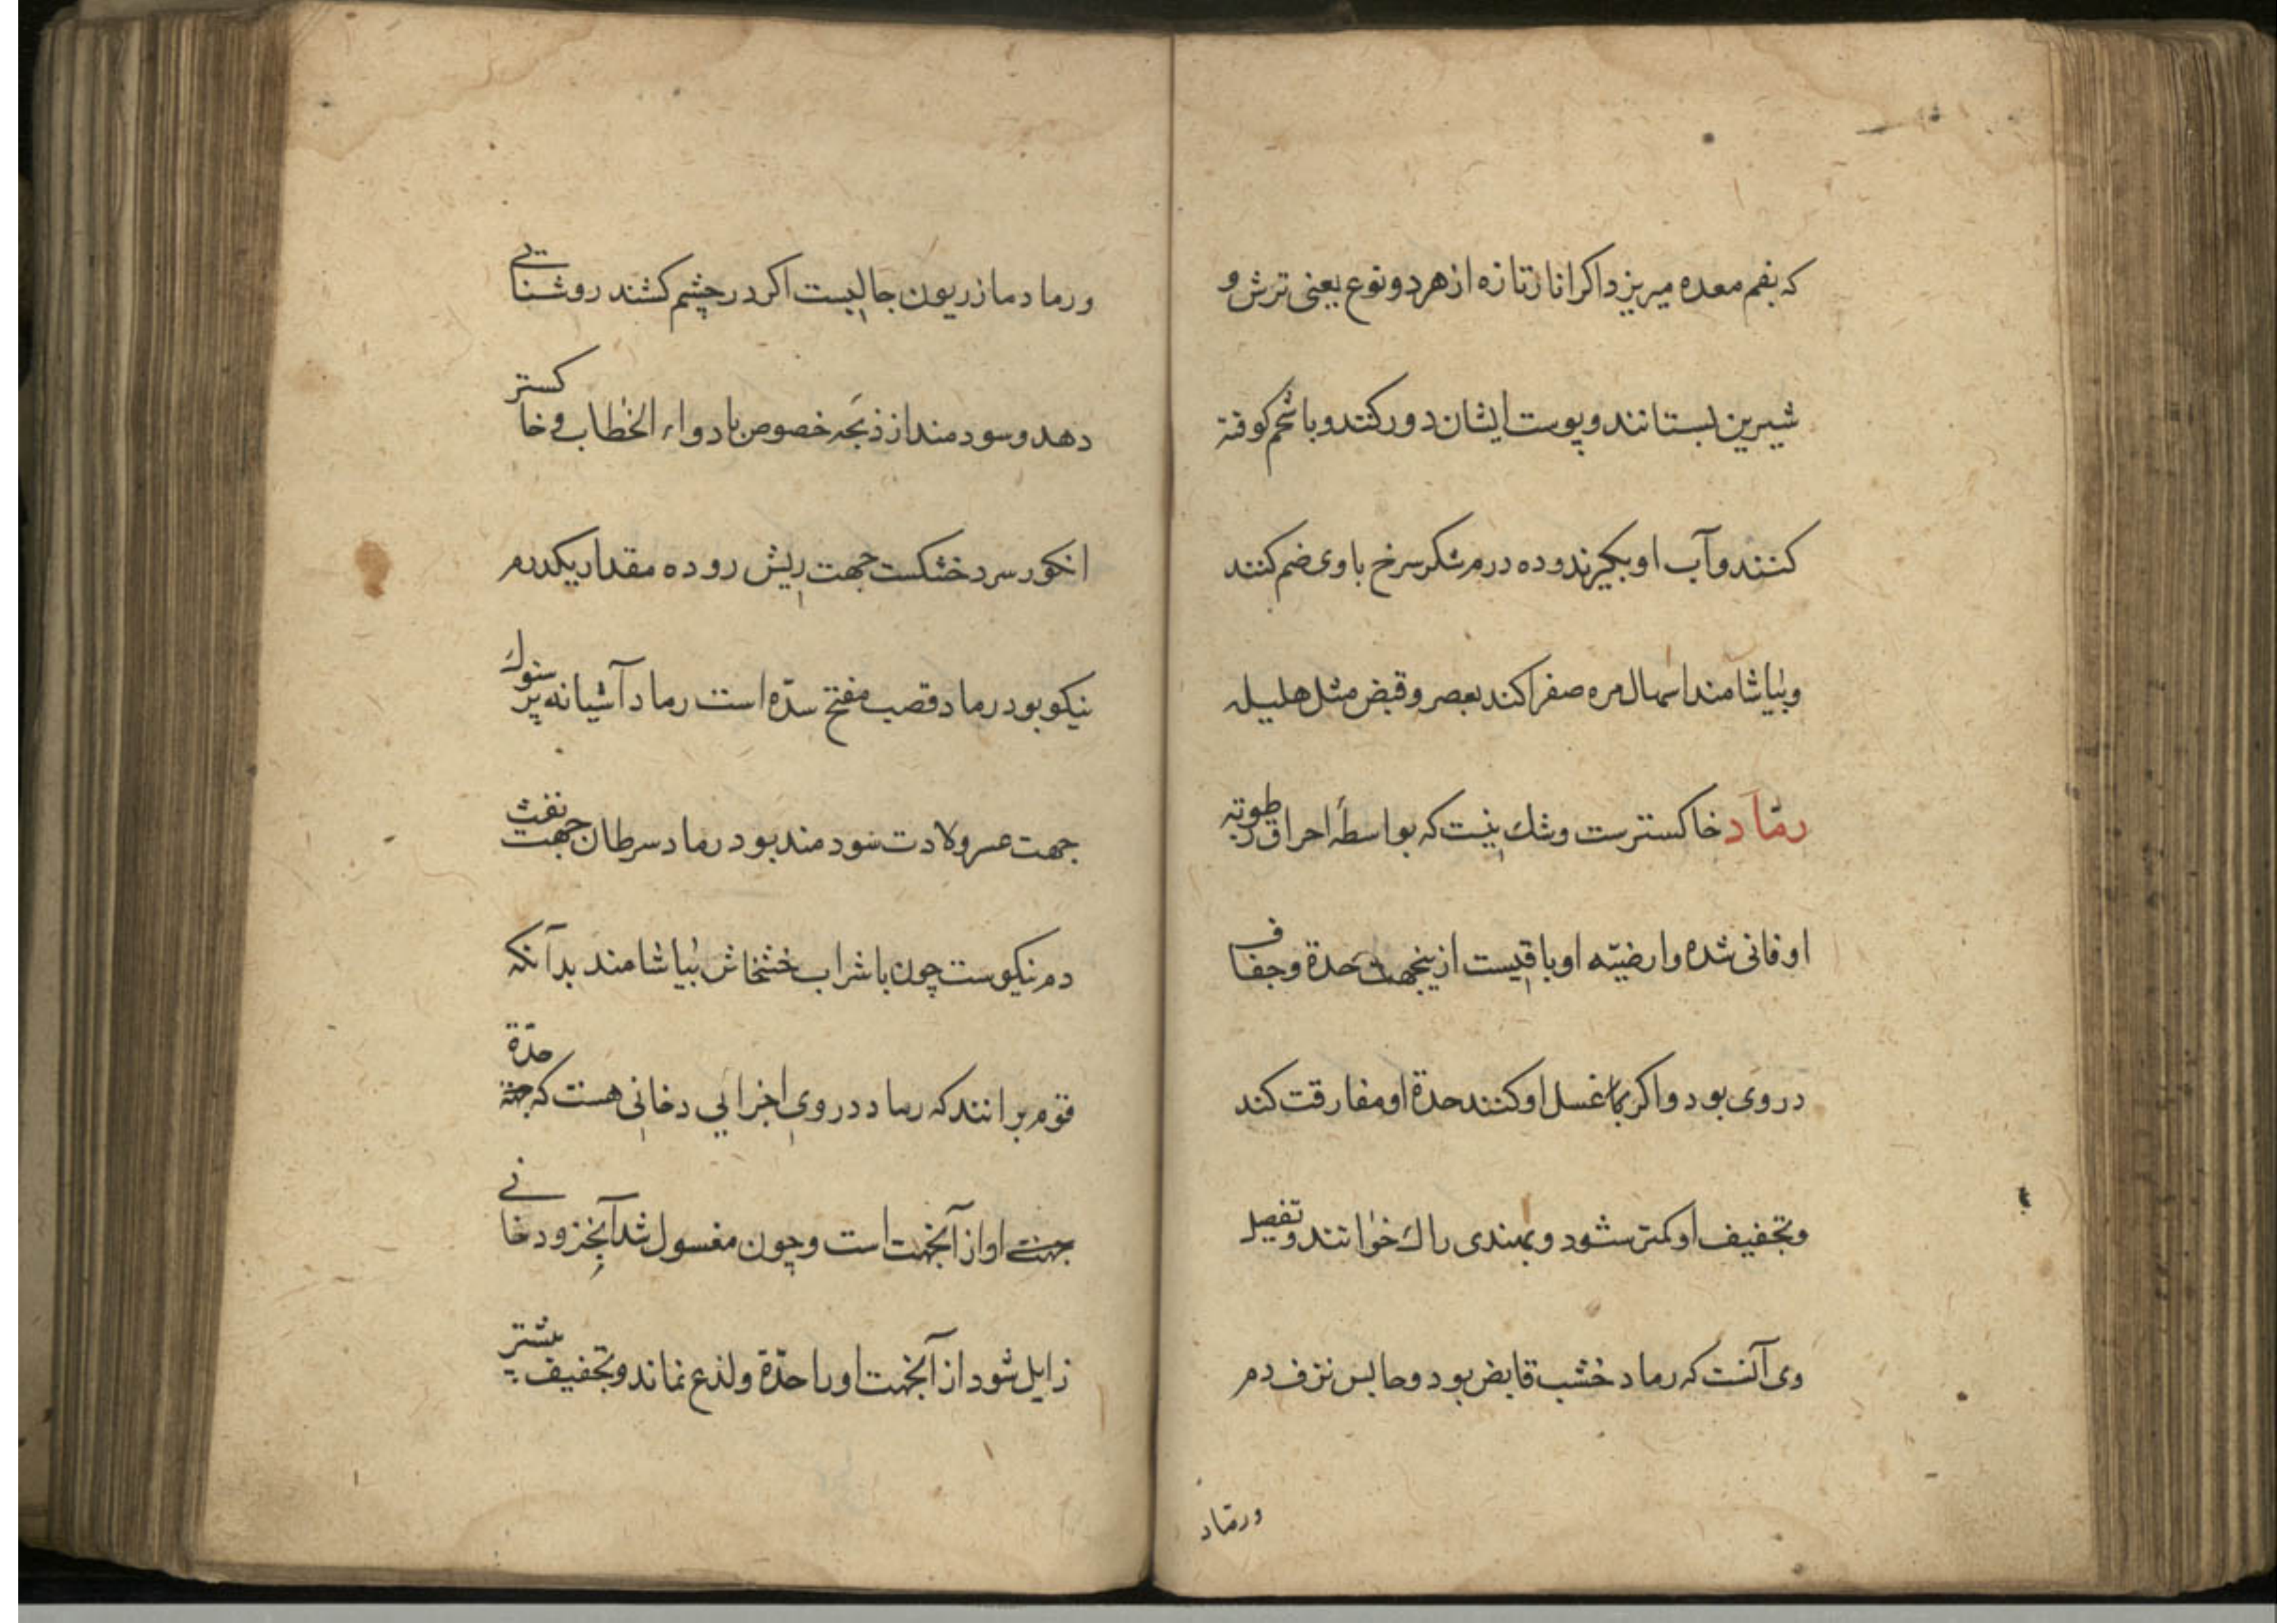 که بفم معده میریزد اکر انار تازه از هر دو نوع یعنی ترش و
شیرین بستانند و پوست ایشان دور کنند و با شحم کوفته
کنند و آب او بکیرند و ده درم شکر سرخ با وی ضم کنند
و بیاشامند اسهال مره صفرا کند بعصر و قبض مثل هلیله
رماد خاکسترست و شک نیست که بواسطهٔ احراق رطوبته
او فانی شده و ارضیّه او باقیست ازینجهت حدة و جفاف
در وی بود و اکر بما غسل او کنند حدة او مفارقت کند
و تجفیف او کمتر شود و بهندی راک خوانند و تفصیل
وی آنست که رماد خشب قابض بود و حابس نزف دم
ورماد
ورماد مازریون جالیست اکر در چشم کشند روشنایی
دهد و سودمند از ذبحه خصوص با دواء الخطاب و خاکستر
انکور سرد خشکست جهت ریش روده مقدار یکدرم
نیکو بود رماد قصب مفتح سدّه است رماد آشیانه پرستوک
جهت عسر ولادت سودمند بود رماد سرطان جهت نفث
دم نیکوست چون با شراب خشخاش بیاشامند بدآنکه
قوم برانند که رماد در وی اجزایی دخانی هست که حدّة
او از آنجهت است و چون مغسول شد آنجزو دخانی
زایل شود از آنجهت او را حدّة و لذع نماند و تجفیف بیشتر